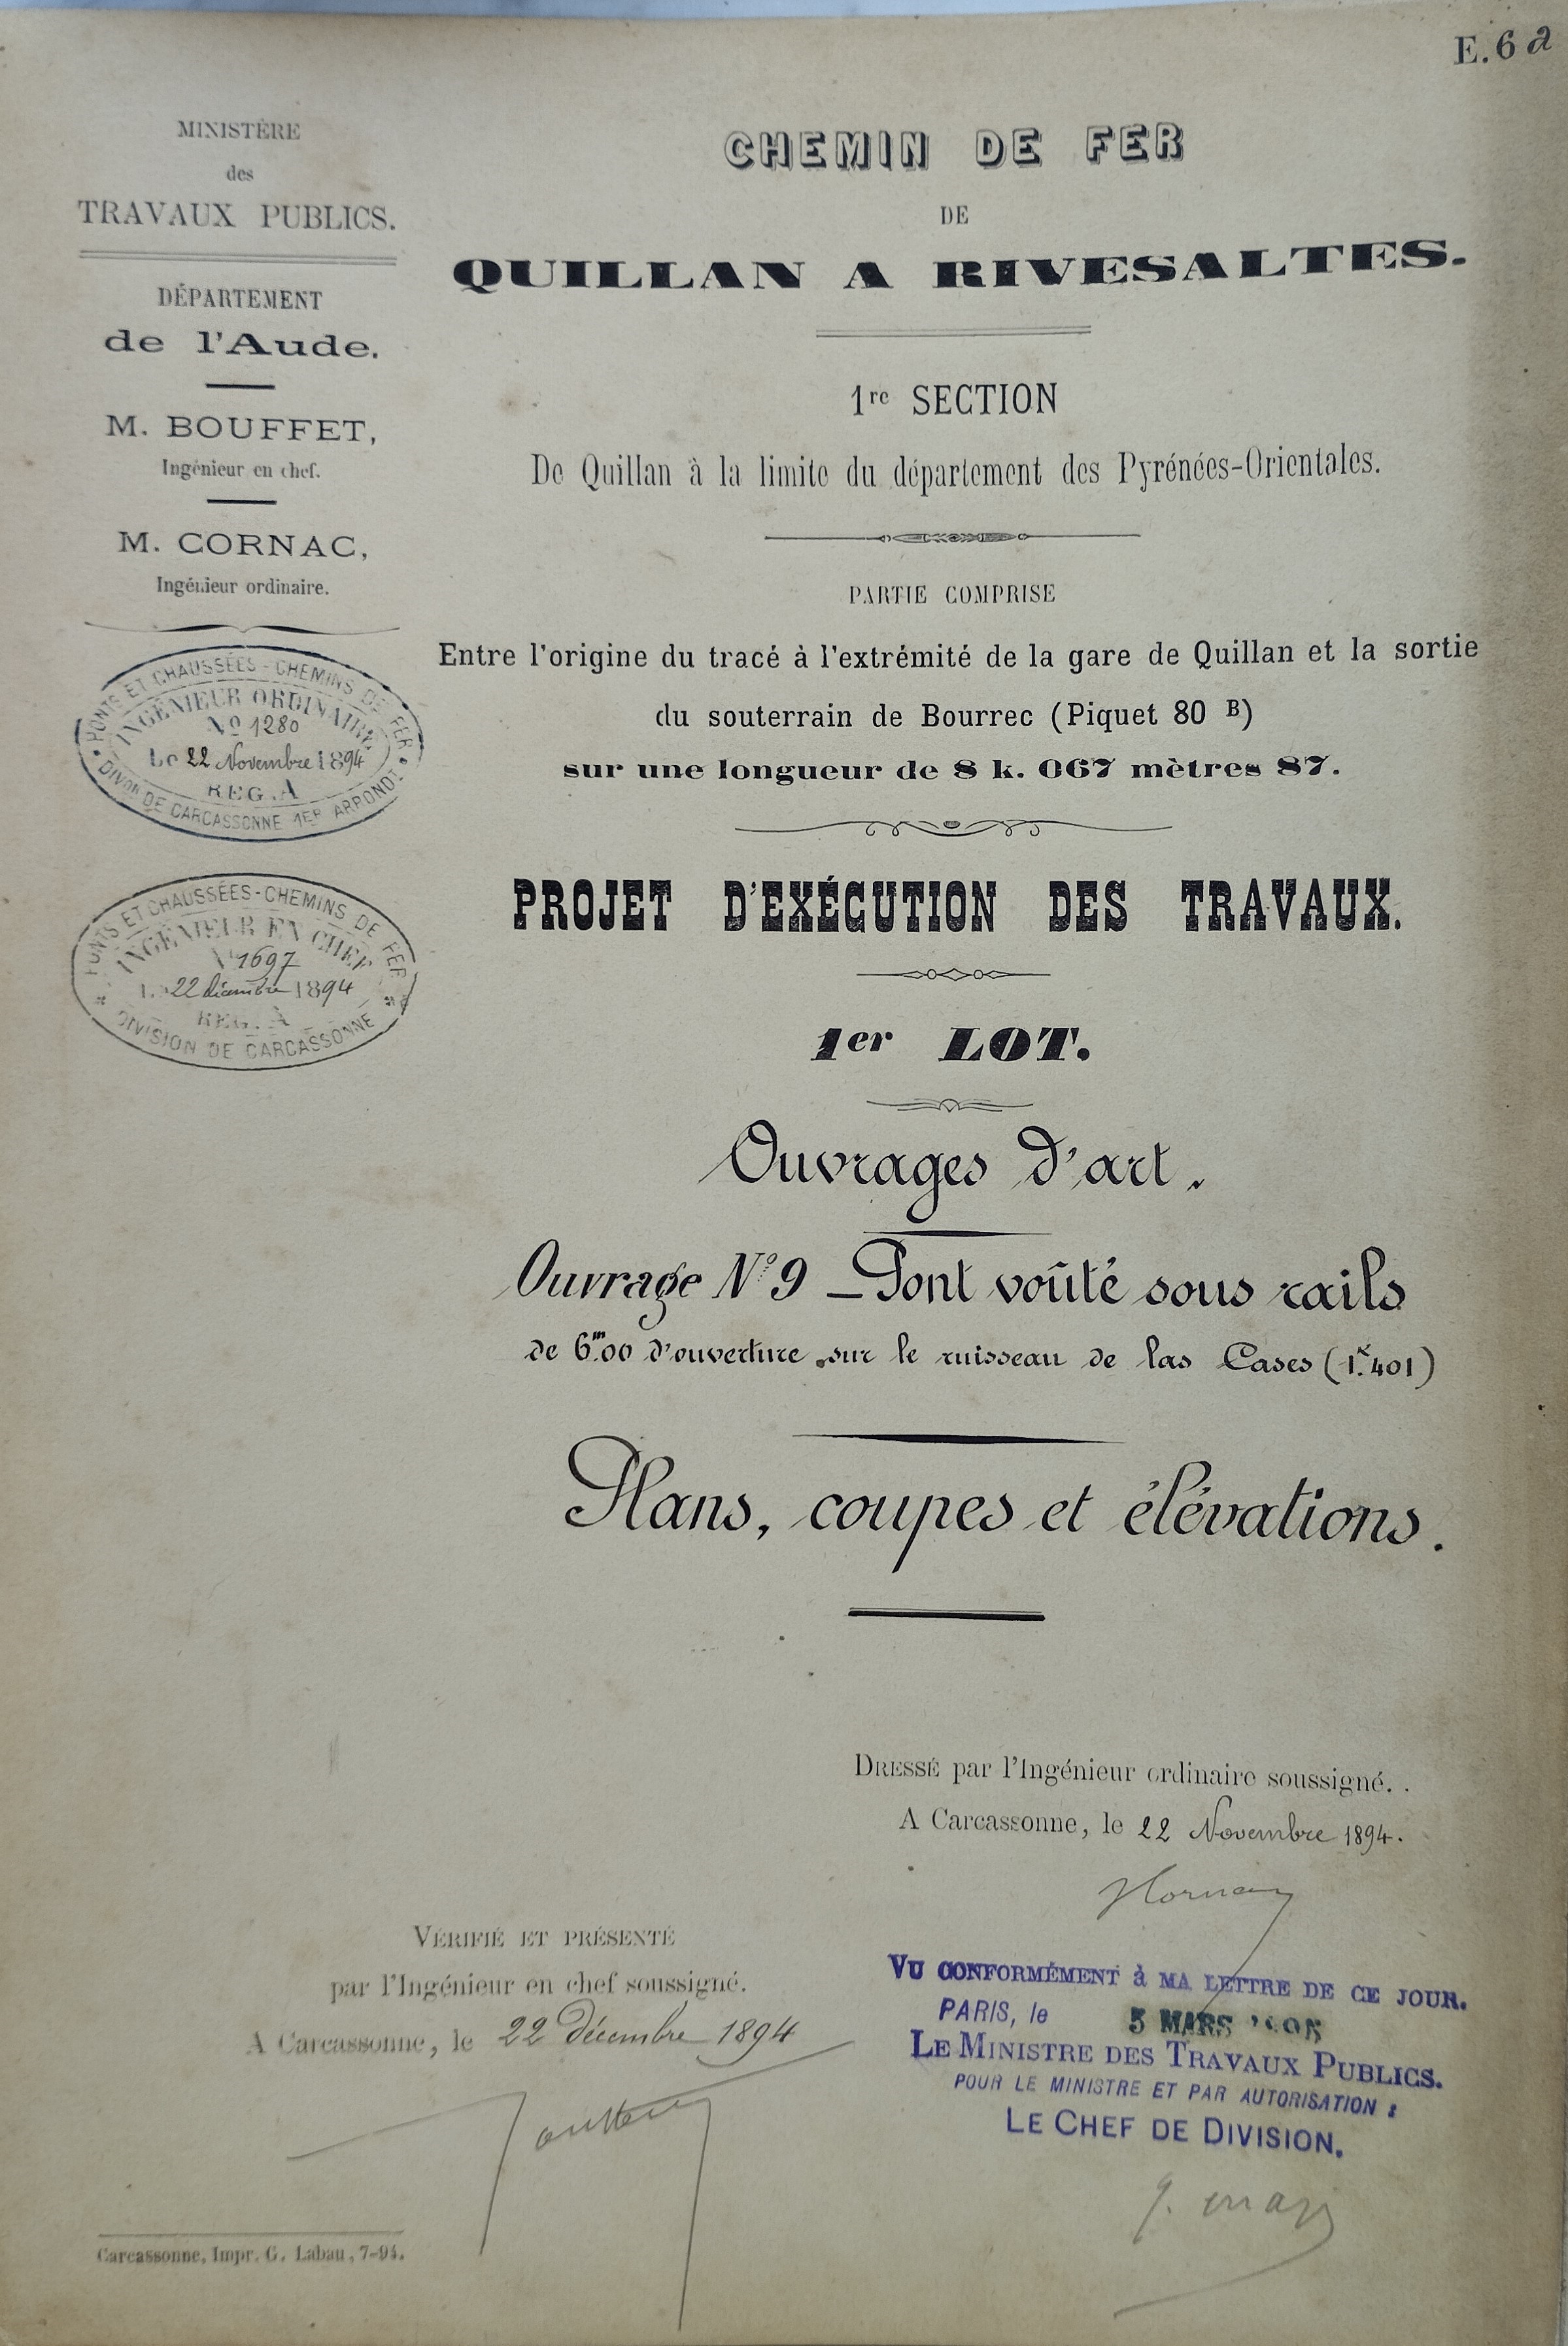 E. 6 a
MINISTÈRE
des
TRAVAUX PUBLICS.
DÉPARTEMENT
de l'Aude.
M. BOUFFET,
Ingénieur en chef.
M. CORNAC,
Ingénieur ordinaire.
PONTS ET CHAUSSÉES - CHEMINS DE FER
INGÉNIEUR ORDINAIRE
No 1280
Le 22 Novembre 1894
REG. A
DIVon DE CARCASSONNE 1ER ARRONDT
PONTS ET CHAUSSÉES - CHEMINS DE FER
INGÉNIEUR EN CHEF
N° 1697
22 décembre 1894
REG. A
DIVISION DE CARCASSONNE
CHEMIN DE FER
DE
QUILLAN A RIVESALTES.
1re SECTION
De Quillan à la limite du département des Pyrénées-Orientales.
PARTIE COMPRISE
Entre l'origine du tracé à l'extrémité de la gare de Quillan et la sortie
du souterrain de Bourrec (Piquet 80 B)
sur une longueur de 8 k. 067 mètres 87.
PROJET D'EXÉCUTION DES TRAVAUX.
1er LOT.
Ouvrages d'art.
Ouvrage N° 9 _ Pont voûté sous rails
de 6m.00 d'ouverture sur le ruisseau de las Cases (1k.401)
Plans, coupes et élévations.
DRESSÉ par l'Ingénieur ordinaire soussigné.
A Carcassonne, le 22 Novembre 1894.
VÉRIFIÉ ET PRÉSENTÉ
par l'Ingénieur en chef soussigné.
A Carcassonne, le 22 Décembre 1894
VU CONFORMÉMENT à MA LETTRE DE CE JOUR.
PARIS, le 5 MARS 1895
LE MINISTRE DES TRAVAUX PUBLICS.
POUR LE MINISTRE ET PAR AUTORISATION :
LE CHEF DE DIVISION.
Carcassonne, Impr. G. Labau, 7-94.